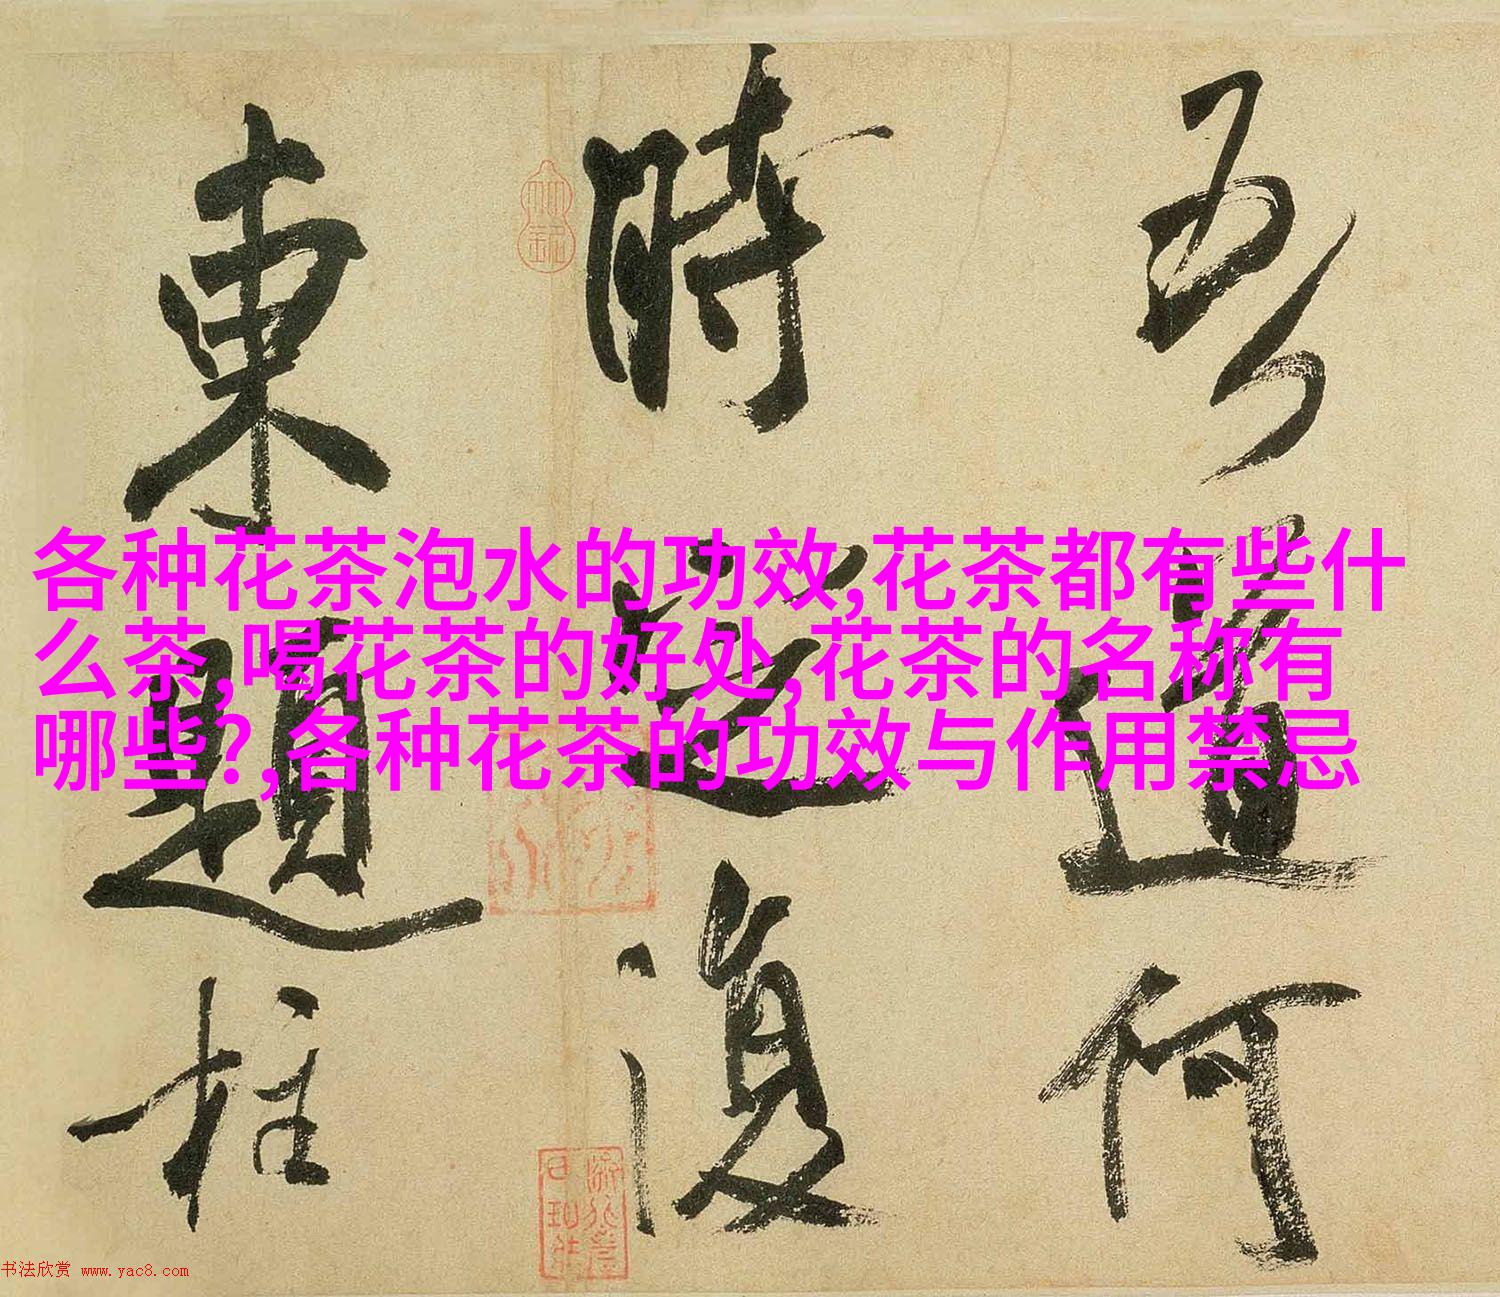 吾道何
時逆復
東題柱
各种花茶泡水的功效,花茶都有些什
么茶,喝花茶的好处,花茶的名称有
哪些?,各种花茶的功效与作用禁忌
书法欣赏 www.yac8.com